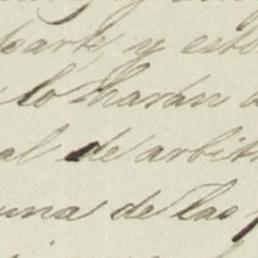 parte y esto
lo harán a
al de arbitr
una de las p